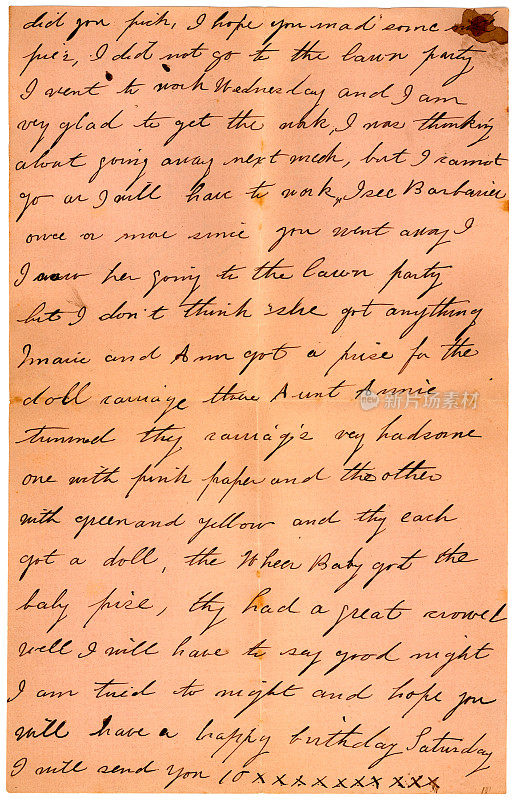 did you pick, I hope you mad some
pie's, I did not go to the lawn party
I went to work Wednesday and I am
vey glad to get the work, I was thinking
about going away next week, but I cannot
go as I will have to work, I see Barbarie
once or more since you went away I
I saw her going to the lawn party
but I don't think she got anything
Imaie and Ann got a prise for the
doll carriage there Aunt Annie
trimmed they carriag's vey hadsome
one with pink paper and the other
with green and yellow and thy each
got a doll, the Wheer Baby got the
baby prise, thy had a great crowd
well I will have to say good night
I am tired to night and hope you
will have a happy birthday Saturday
I will send you 10 x x x x x x x x x x
iStock